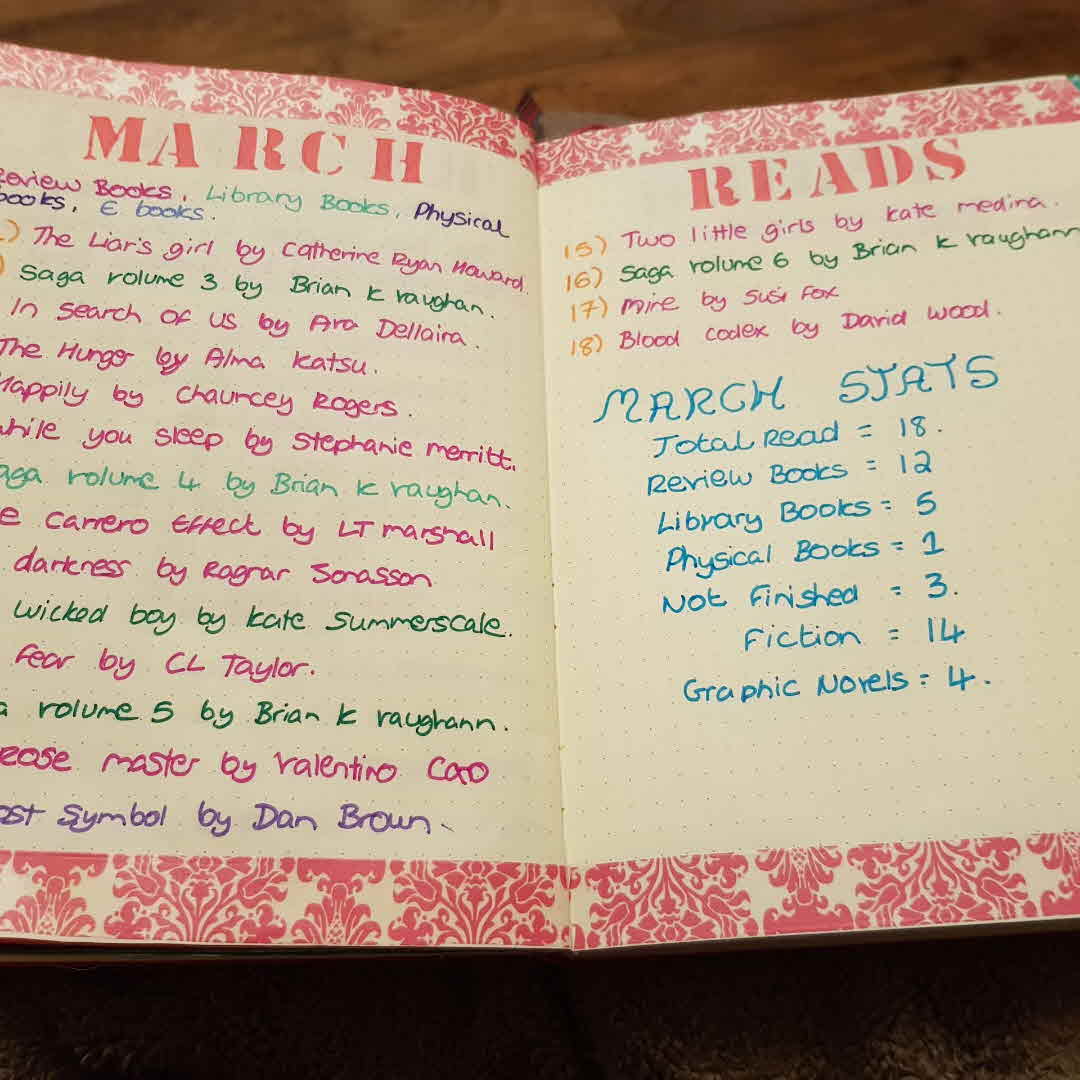 MARCH
Review Books, Library Books, Physical
books, E books.
1) The Liar's girl by Catherine Ryan Howard.
) Saga volume 3 by Brian K vaughan.
In Search of us by Ava Dellaira.
The Hunger by Alma Katsu.
Happily by Chauncey Rogers.
while you sleep by Stephanie merritt.
aga volume 4 by Brian K vaughan.
e Carrero Effect by LT marshall
darkness by Ragnar Jonasson
wicked boy by Kate Summerscale.
fear by CL Taylor.
a volume 5 by Brian K vaughann.
ease master by Valentino Cao
ost Symbol by Dan Brown.
READS
15) Two little girls by Kate medina.
16) Saga volume 6 by Brian K vaughann
17) Mine by Susi Fox
18) Blood codex by David wood.
MARCH STATS
Total Read = 18.
Review Books = 12
Library Books = 5
Physical Books = 1
Not Finished = 3.
Fiction = 14
Graphic Novels = 4.